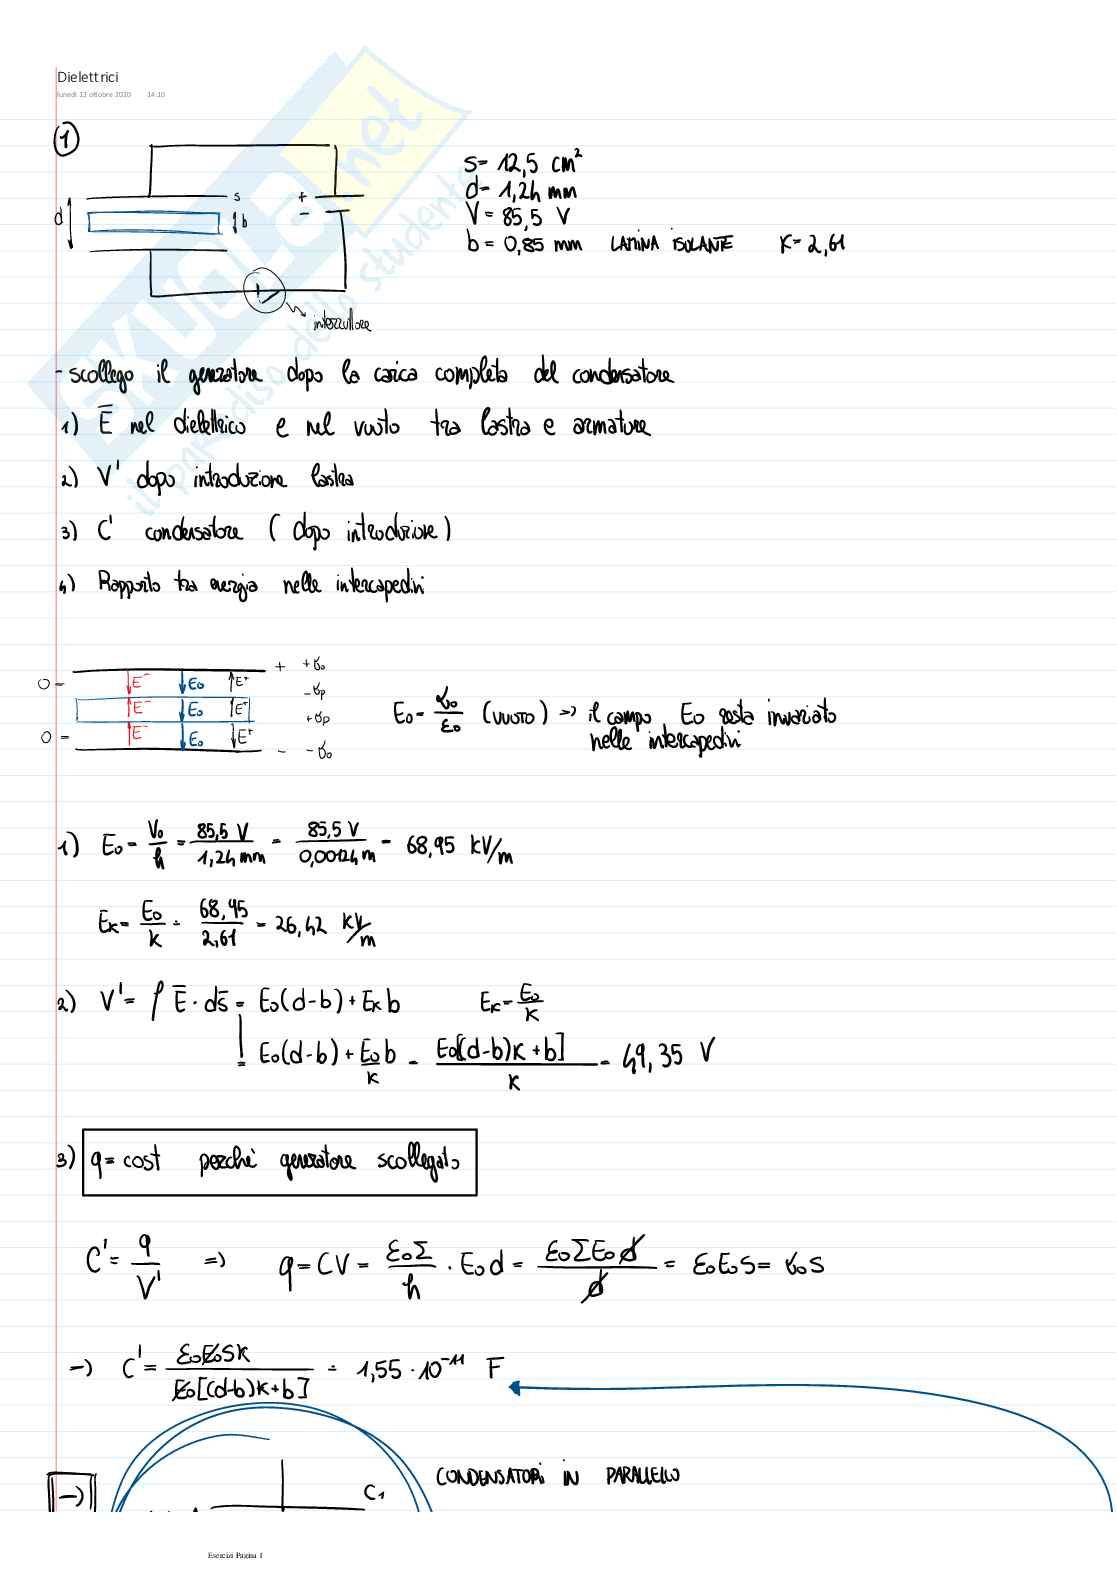 Dielettrici
lunedì 12 ottobre 2020 14:10
SKUOLA.net
il paradiso dello studente
1
s= 12,5 cm²
d= 1,24 mm
V= 85,5 V
b= 0,85 mm LAMINA ISOLANTE K=2,61
d
s
b
+
-
interruttore
- scollego il generatore dopo la carica completa del condensatore
1) E̅ nel dielettrico e nel vuoto tra lastra e armature
2) V' dopo introduzione lastra
3) C' condensatore ( dopo introduzione )
4) Rapporto tra energia nelle intercapedini
+ +σ₀
0 - E⁻ E₀ E⁺
-σp
E⁻ E₀ E⁺
+σp
0 - E⁻ E₀ E⁺
- -σ₀
E₀= σ₀/ε₀ (VUOTO) => il campo E₀ resta invariato
nelle intercapedini
1) E₀= V₀/h = 85,5 V/1,24 mm = 85,5 V/0,00124 m = 68,95 kV/m
Eₖ= E₀/k = 68,95/2,61 = 26,42 kV/m
2) V'= ∫ E̅ · ds̅ = E₀(d-b) + Eₖ b Eₖ= E₀/k
= E₀(d-b) + E₀/k b = E₀[(d-b)k+b]/k = 49,35 V
3) q= cost perché generatore scollegato
C'= q/V' => q= CV = ε₀Σ/h · E₀d = ε₀ΣE₀d/d = ε₀E₀s= σ₀s
-> C'= ε₀E₀sk/E₀[(d-b)k+b] = 1,55 · 10⁻¹¹ F
CONDENSATORI IN PARALLELO
->
C₁
Esercizi Pagina 1